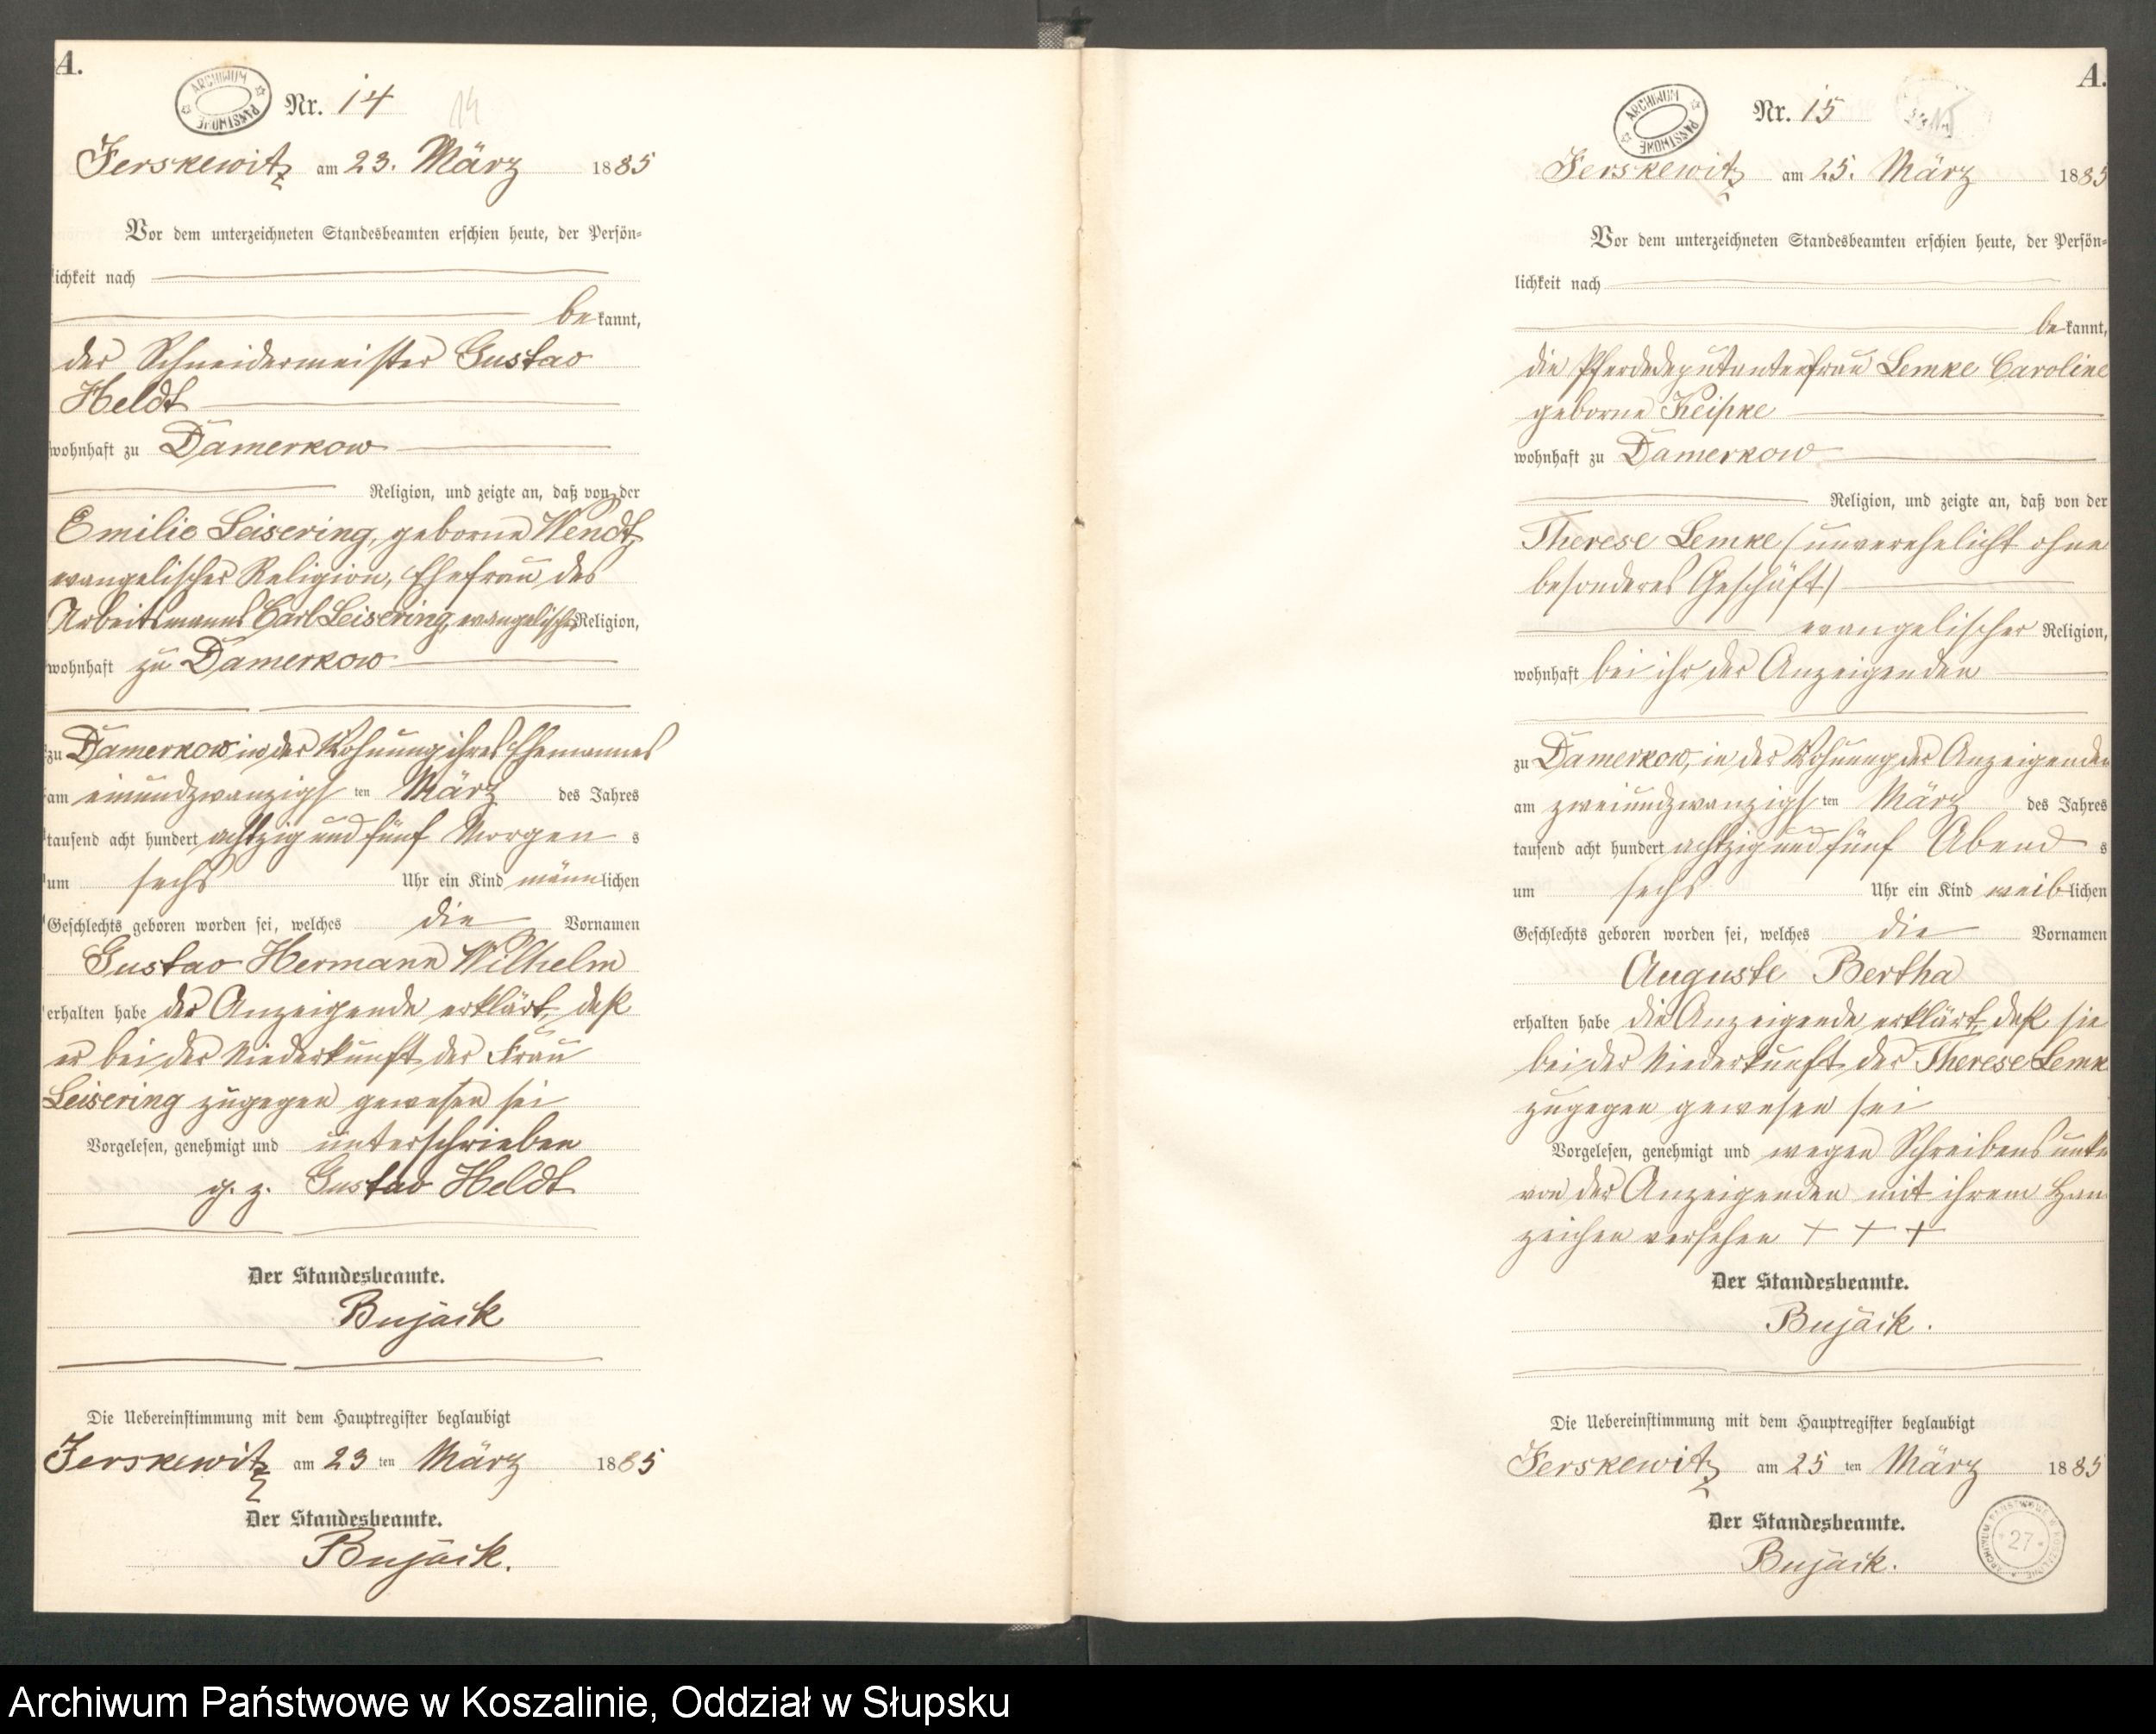 A.
ARCHIWUM PAŃSTWOWE
Nr. 14
14
Jerskewitz am 23. März 1885
Vor dem unterzeichneten Standesbeamten erschien heute, der Persön-
lichkeit nach
bekannt,
der Schneidermeister Gustav
Heldt
wohnhaft zu Damerkow
Religion, und zeigte an, daß von der
Emilie Leisering, geborne Wendt,
evangelischer Religion, Ehefrau des
Arbeitsmanns Carl Leisering, evangelischer Religion,
wohnhaft zu Damerkow
zu Damerkow in der Wohnung ihres Ehemannes
am einundzwanzigsten März des Jahres
tausend acht hundert achtzig und fünf Morgens
um sechs Uhr ein Kind männlichen
Geschlechts geboren worden sei, welches die Vornamen
Gustav Hermann Wilhelm
erhalten habe der Anzeigende erklärt, daß
er bei der Niederkunft der Frau
Leisering zugegen gewesen sei
Vorgelesen, genehmigt und unterschrieben
g. z. Gustav Heldt
Der Standesbeamte.
Bujack
Die Uebereinstimmung mit dem Hauptregister beglaubigt
Jerskewitz am 23ten März 1885
Der Standesbeamte.
Bujack.
A.
ARCHIWUM PAŃSTWOWE
Nr. 15
Jerskewitz am 25. März 1885
Vor dem unterzeichneten Standesbeamten erschien heute, der Persön-
lichkeit nach
bekannt,
die Pferdedeputantenfrau Lemke Caroline
geborne
wohnhaft zu Damerkow
Religion, und zeigte an, daß von der
Therese Lemke (unverehelicht ohne
besonderes Geschäft)
evangelischer Religion,
wohnhaft bei ihr der Anzeigenden
zu Damerkow, in der Wohnung der Anzeigenden
am zweiundzwanzigsten März des Jahres
tausend acht hundert achtzig und fünf Abends
um sechs Uhr ein Kind weiblichen
Geschlechts geboren worden sei, welches die Vornamen
Auguste Bertha
erhalten habe die Anzeigende erklärt, daß sie
bei der Niederkunft der Therese Lemk
zugegen gewesen sei
Vorgelesen, genehmigt und wegen Schreibens unk
von der Anzeigenden mit ihrem Han
zeichen versehen + + +
Der Standesbeamte.
Bujack.
Die Uebereinstimmung mit dem Hauptregister beglaubigt
Jerskewitz am 25ten März 1885
Der Standesbeamte.
Bujack.
27
Archiwum Państwowe w Koszalinie, Oddział w Słupsku